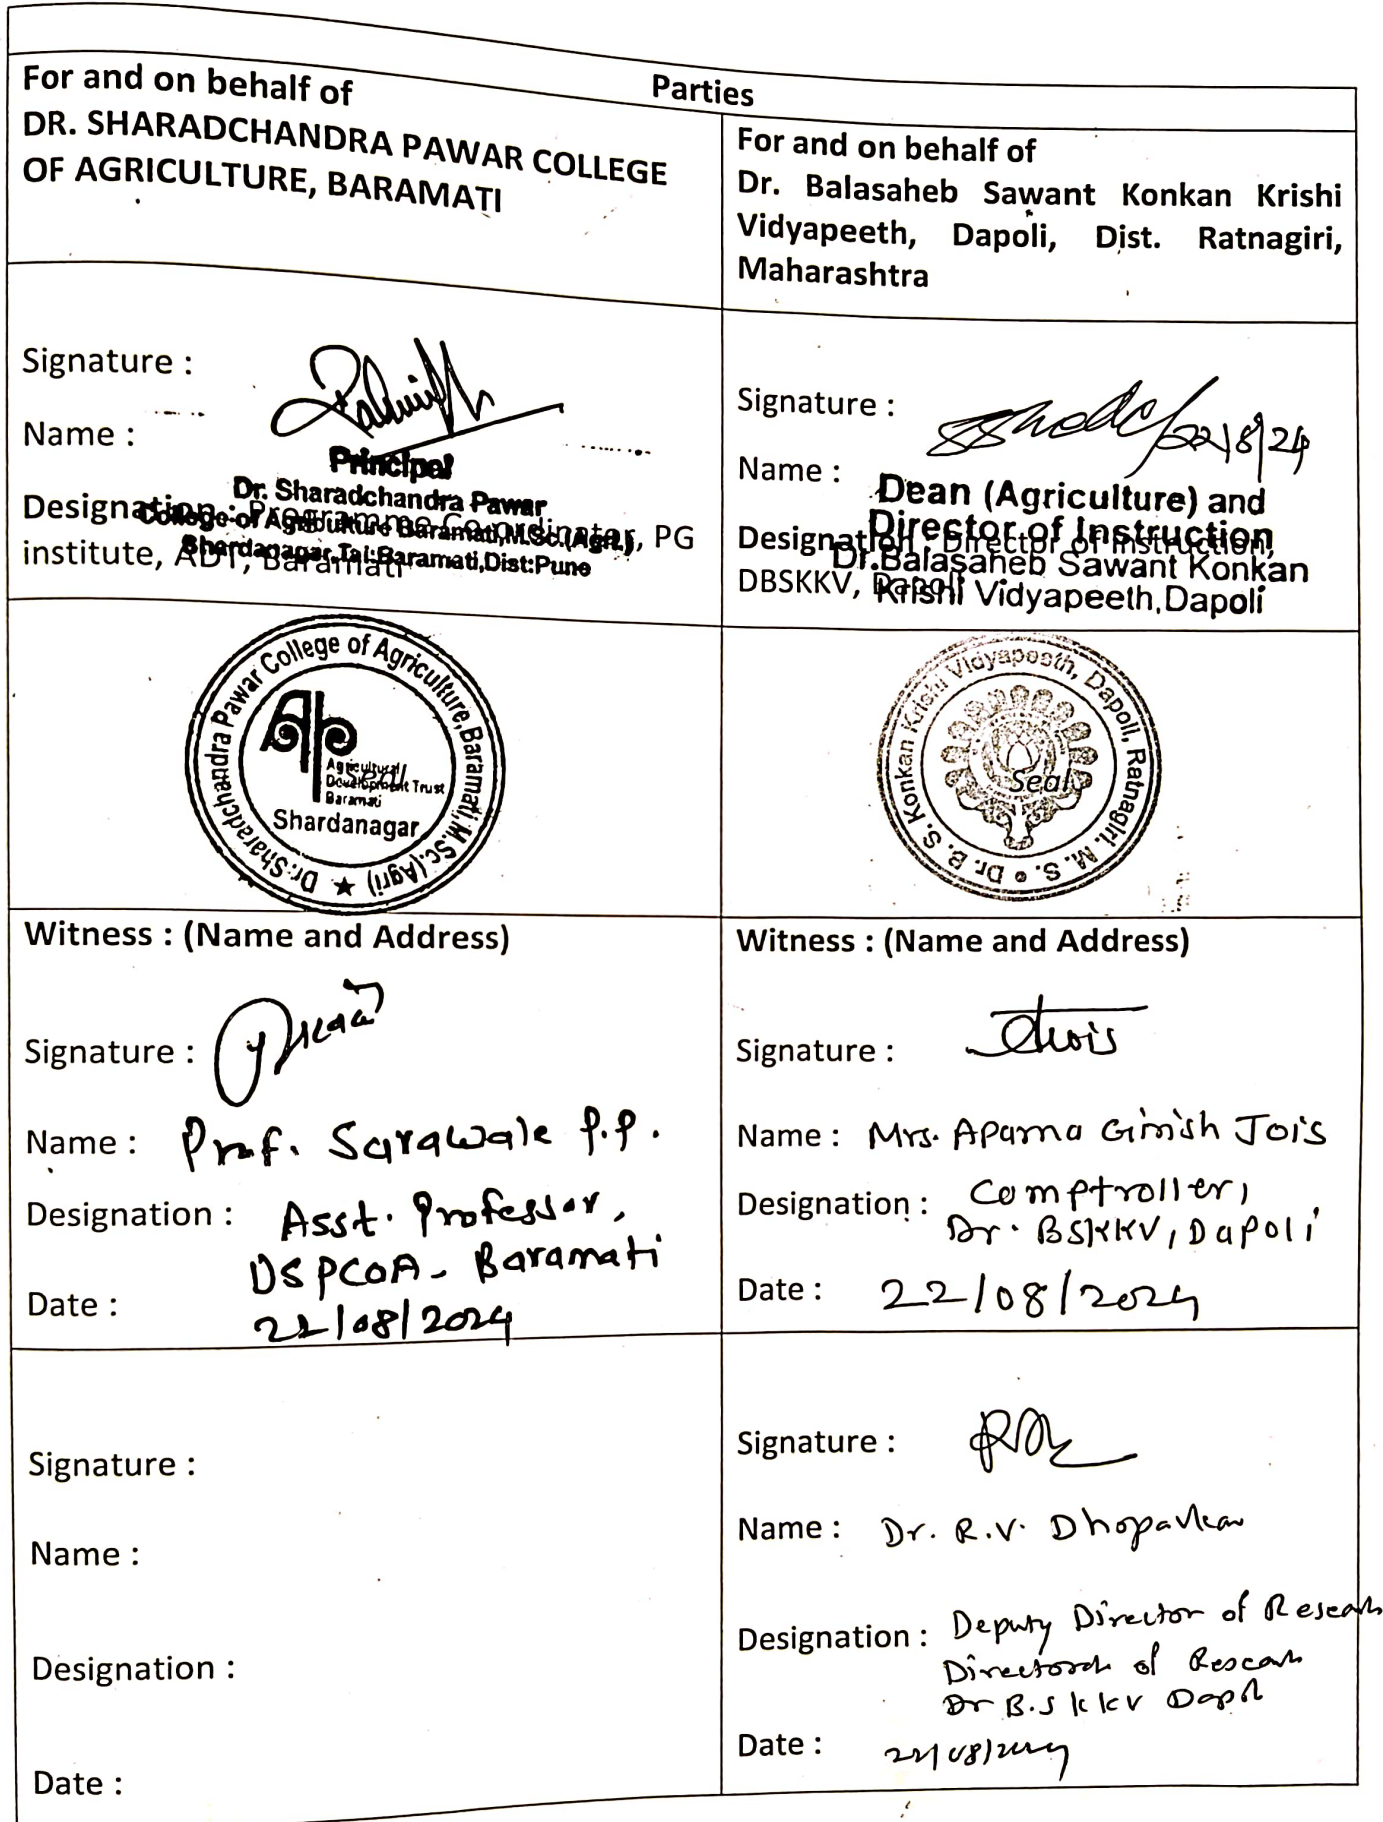 Parties
For and on behalf of
DR. SHARADCHANDRA PAWAR COLLEGE
OF AGRICULTURE, BARAMATI
For and on behalf of
Dr. Balasaheb Sawant Konkan Krishi
Vidyapeeth, Dapoli, Dist. Ratnagiri,
Maharashtra
Signature :
Name :
Principal
Dr. Sharadchandra Pawar
College of Agriculture Baramati,M.Sc.(Agri.)
Shardanagar,Tal:Baramati,Dist:Pune
Designation : Programme Co-ordinator, PG
institute, ADT, Baramati
Signature :
22/8/24
Name :
Dean (Agriculture) and
Director of Instruction
Dr.Balasaheb Sawant Konkan
Krishi Vidyapeeth,Dapoli
Designation : Director of Instruction,
DBSKKV, Dapoli
Dr.Sharadchandra Pawar College of Agriculture,Baramati,M.Sc.(Agri) ★
Agricultural
Development Trust
Baramati
Shardanagar
Seal
Dr. B. S. Konkan Krishi Vidyapeeth, Dapoli, Ratnagiri. M. S. •
Seal
Witness : (Name and Address)
Signature :
Name : Prof. Sarawale P.P.
Designation : Asst. Professor,
DSPCOA - Baramati
Date : 22/08/2024
Witness : (Name and Address)
Signature :
Name : Mrs. Aparna Girish Jois
Designation : Comptroller,
Dr. BSKKV, Dapoli
Date : 22/08/2024
Signature :
Name :
Designation :
Date :
Signature :
Name : Dr. R.V. Dhopavkar
Designation : Deputy Director of Research
Directorate of Research
Dr B.S KKV Dapoli
Date : 22/08/2024